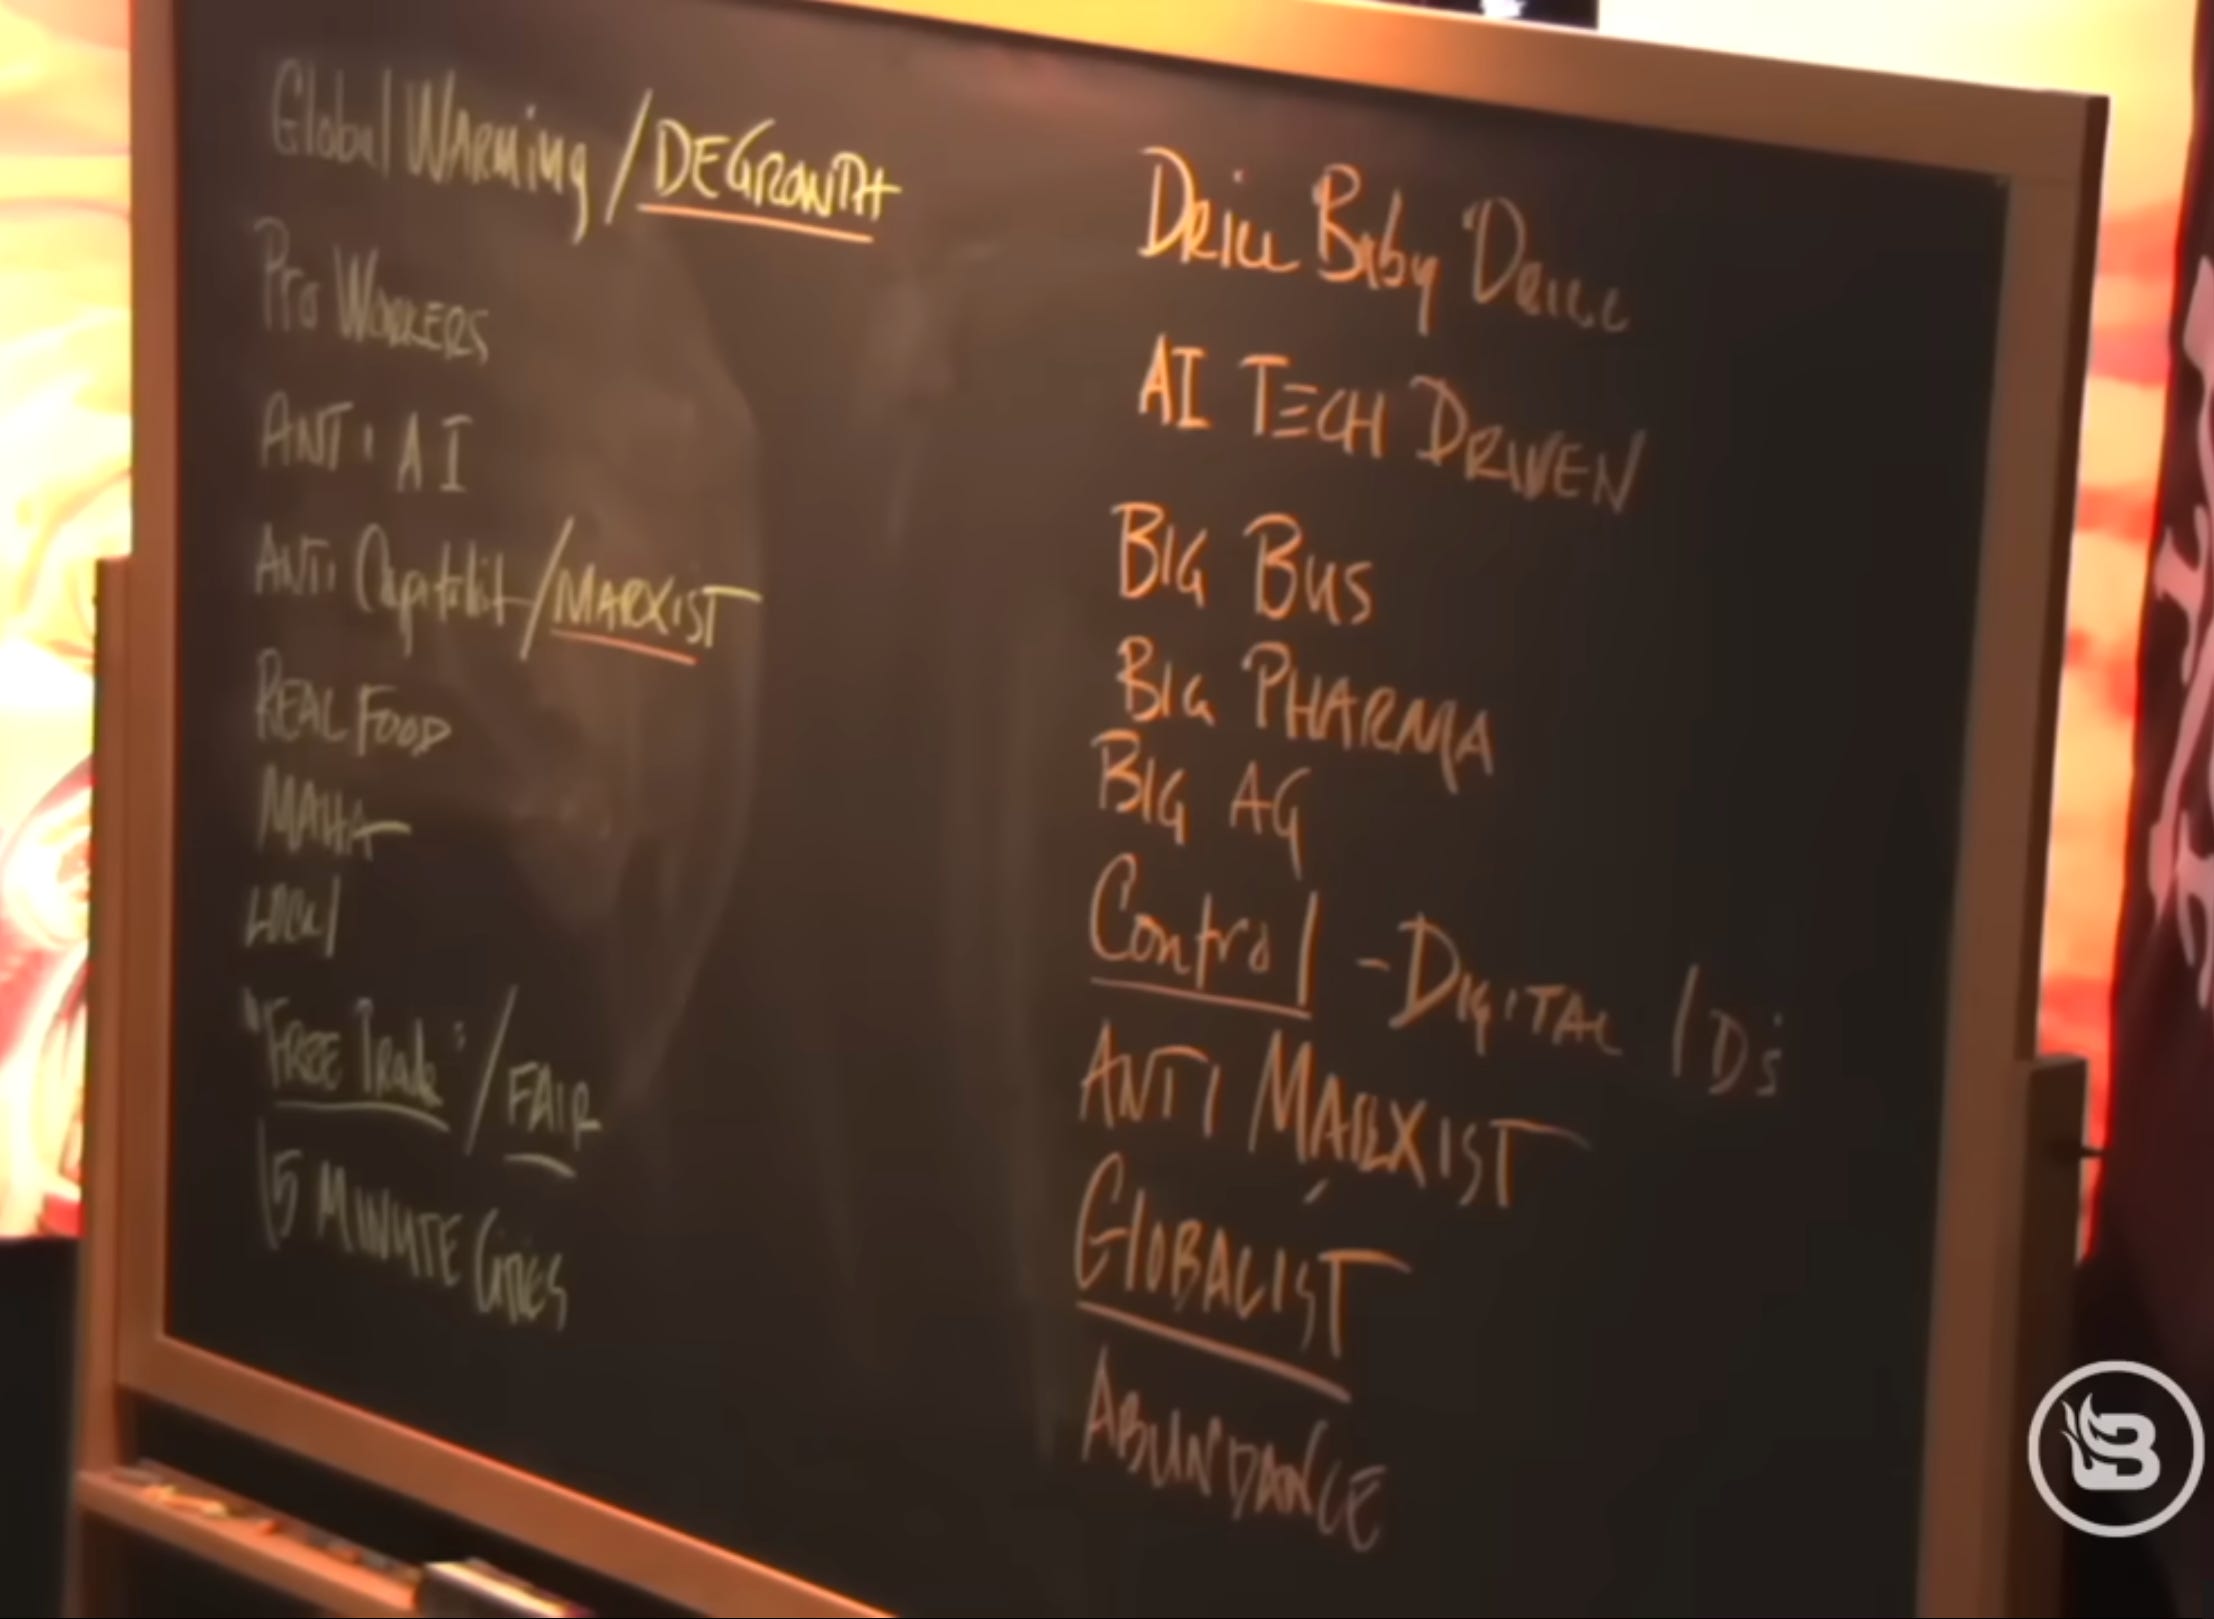 Global WARMiNg / DEGROWTH
Pro WORKERS
ANTi AI
ANTi Capitalist / MARXIST
REAL FOOD
MAHA
LOCAl
"FREE Trade" / FAIR
15 MINUTE CiTiES
DRILL BAby DRILL
AI TECH DRIVEN
BIG BUS
BIG PHARMA
BIG AG
Control - DIGITAL IDs
ANTI MARXIST
GlOBALIST
ABUNDANCE
B